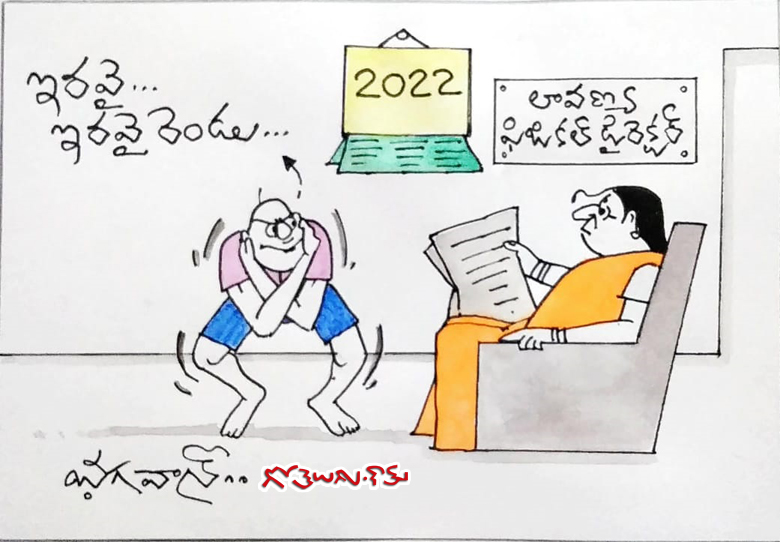 ఇరవై...
ఇరవై రెండు...
2022
లావణ్య
ఫిజికల్ డైరెక్టర్
భగవాన్..
గోతెలుగు.కామ్